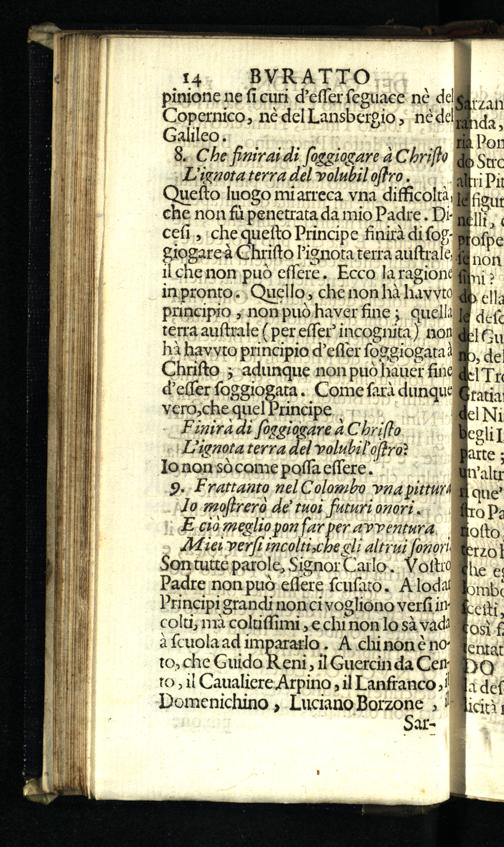 14 BVRATTO
pinione ne si curi d'esser seguace nè del
Copernico, nè del Lansbergio, nè del
Galileo.
8. Che finirai di soggiogare à Christo
L'ignota terra del volubil ostro.
Questo luogo mi arreca vna difficoltà,
che non fù penetrata da mio Padre. Di-
cesi, che questo Principe finirà di sog-
giogare à Christo l'ignota terra australe,
il che non può essere. Ecco la ragione
in pronto. Quello, che non hà havvto
principio, non può haver fine; quella
terra australe (per esser' incognita) non
hà havvto principio d'esser soggiogata à
Christo; adunque non può hauer fine
d'esser soggiogata. Come sarà dunque
vero, che quel Principe
Finirà di soggiogare à Christo
L'ignota terra del volubil'ostro?
Io non sò come possa essere.
9. Frattanto nel Colombo vna pittura
Io mostrerò de' tuoi futuri onori.
E ciò meglio pon far per avventura
Miei versi incolti, che gli altrui sonori.
Son tutte parole, Signor Carlo. Vostro
Padre non può essere scusato. A lodar
Principi grandi non ci vogliono versi in-
colti, mà coltissimi, e chi non lo sà vada
à scuola ad impararlo. A chi non è no-
to, che Guido Reni, il Guercin da Cen-
to, il Caualiere Arpino, il Lanfranco, il
Domenichino, Luciano Borzone, il
Sar-
Sarzan
randa,
ria Pon
do Stro
altri Pit
le figur
nelli,
prospe
se non
simi?
do ella
le desc
del Gu
no, del
del Tre
Gratia
del Ni
begli I
parte;
un'altr
ri que'
stro Pa
riosto
terzo
che es
lombo
scesti,
così
tentat
DO
la des
licità